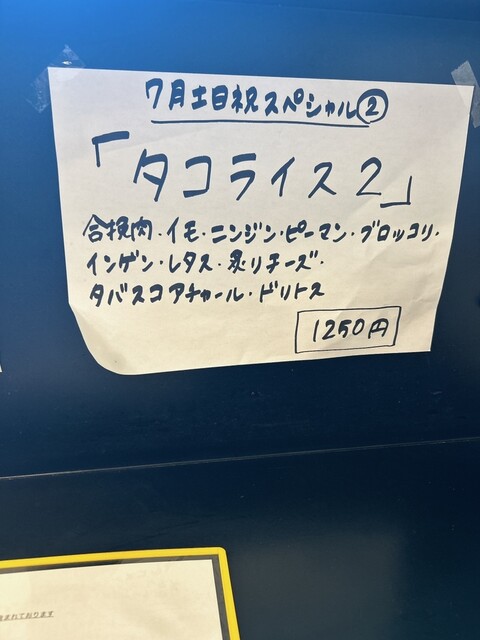 7月土日祝スペシャル②
「タコライス2」
合挽肉・イモ・ニンジン・ピーマン・ブロッコリ・
インゲン・レタス・炙りチーズ・
タバスコアチャール・ドリトス
1250円
まれております